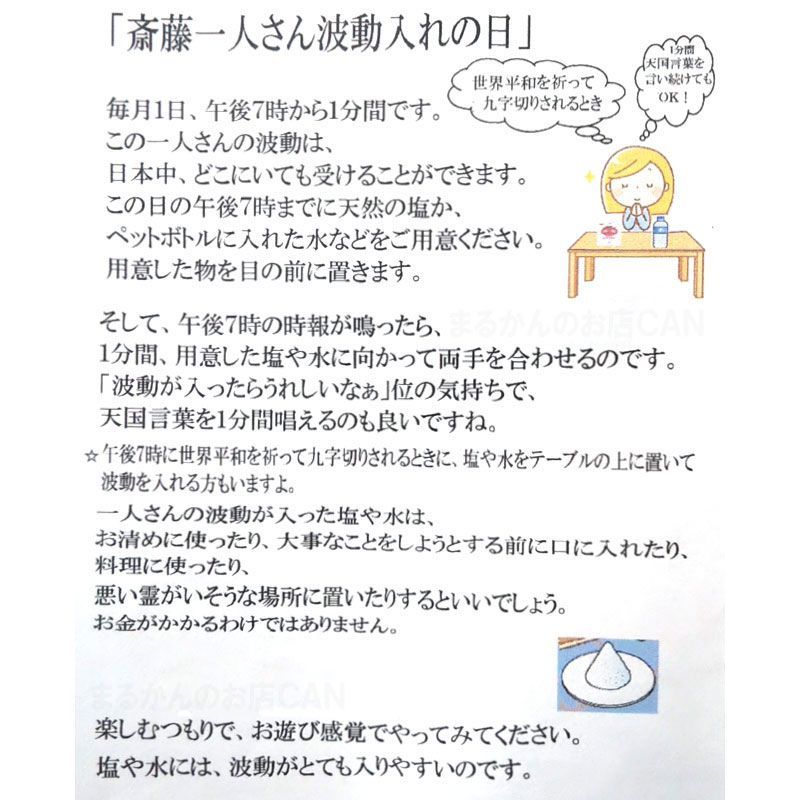 「斎藤一人さん波動入れの日」
世界平和を祈って
九字切りされるとき
1分間
天国言葉を
言い続けても
OK！
毎月1日、午後7時から1分間です。
この一人さんの波動は、
日本中、どこにいても受けることができます。
この日の午後7時までに天然の塩か、
ペットボトルに入れた水などをご用意ください。
用意した物を目の前に置きます。
まるかんのお店CAN
そして、午後7時の時報が鳴ったら、
1分間、用意した塩や水に向かって両手を合わせるのです。
「波動が入ったらうれしいなぁ」位の気持ちで、
天国言葉を1分間唱えるのも良いですね。
☆午後7時に世界平和を祈って九字切りされるときに、塩や水をテーブルの上に置いて
波動を入れる方もいますよ。
一人さんの波動が入った塩や水は、
お清めに使ったり、大事なことをしようとする前に口に入れたり、
料理に使ったり、
悪い霊がいそうな場所に置いたりするといいでしょう。
お金がかかるわけではありません。
まるかんのお店CAN
楽しむつもりで、お遊び感覚でやってみてください。
塩や水には、波動がとても入りやすいのです。